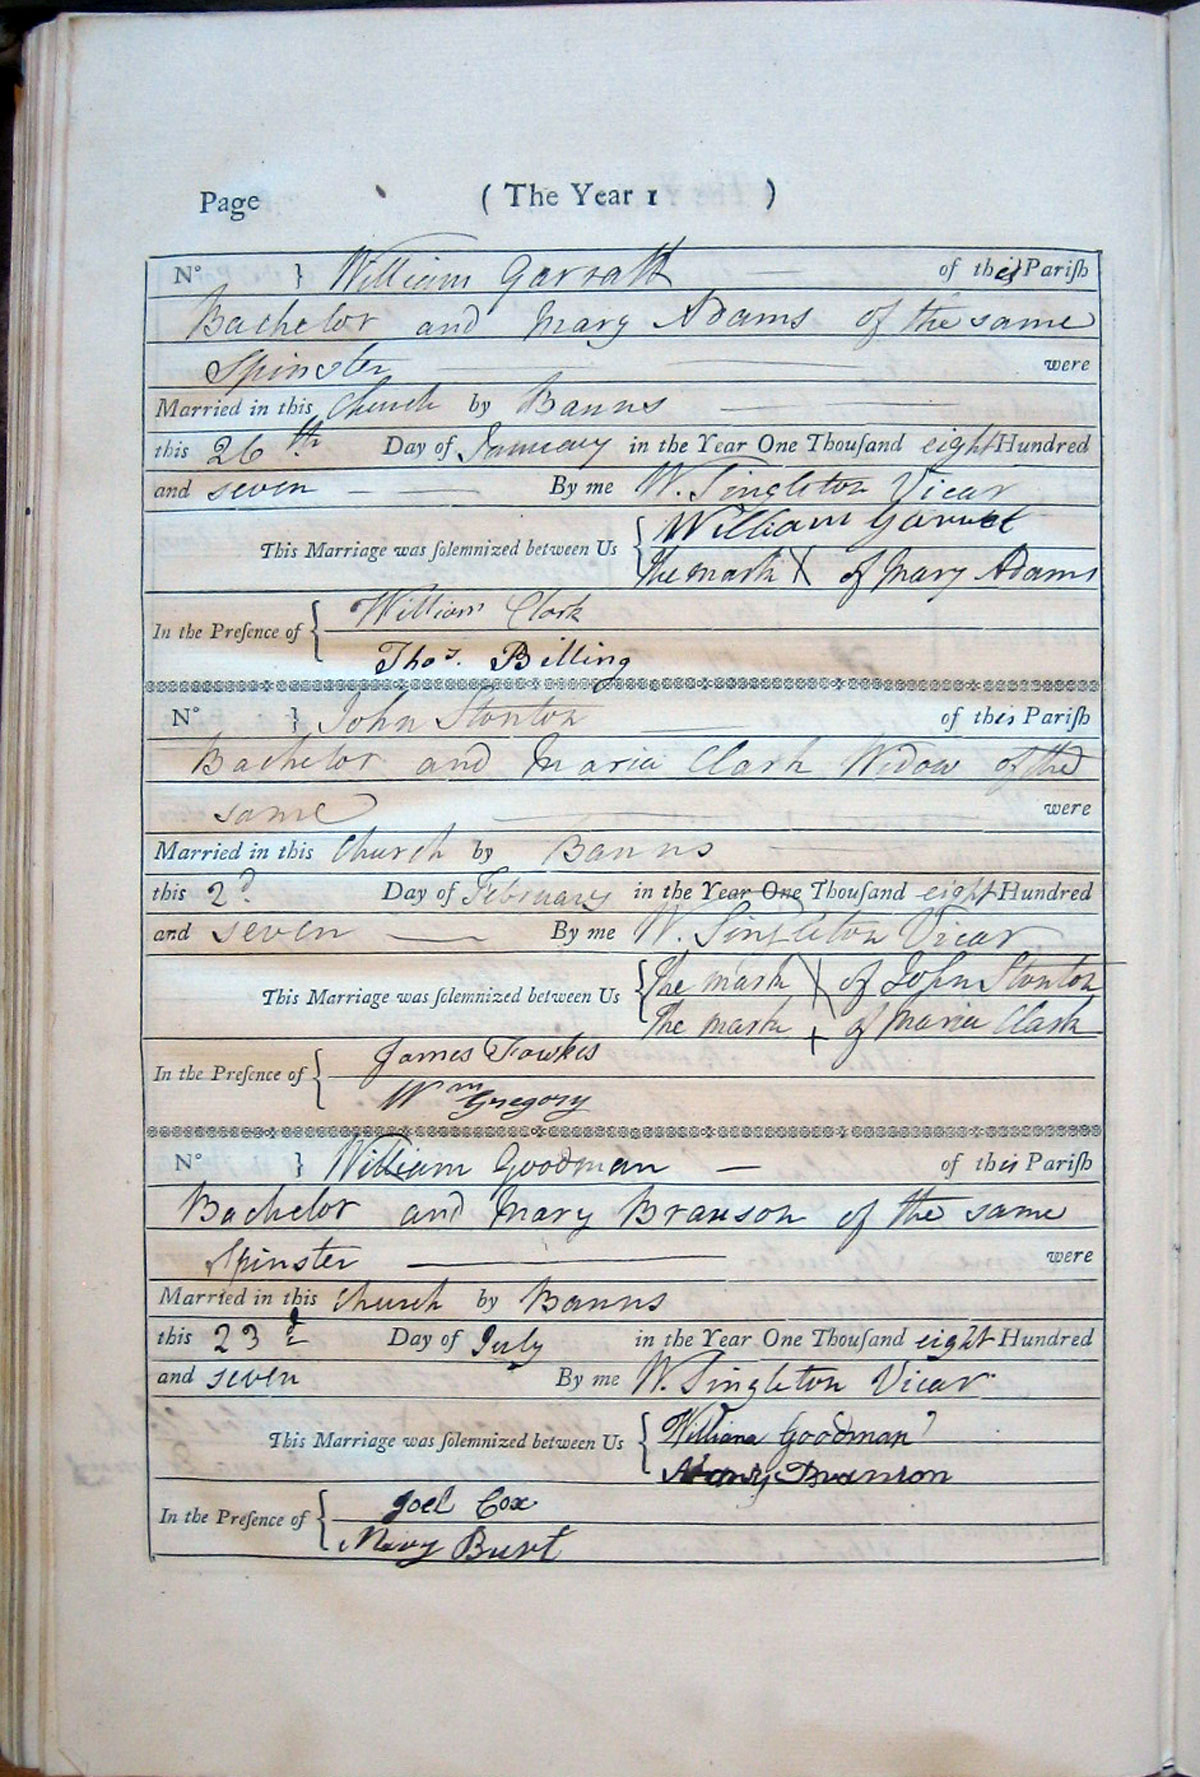 Page ( The Year 1 )
N° } William Garratt — of this Pariſh
Bachelor and Mary Adams of the same
Spinster — were
Married in this Church by Banns —
this 26th Day of January in the Year One Thouſand eight Hundred
and seven — By me W. Singleton Vicar
This Marriage was ſolemnized between Us { William Garratt
The mark X of Mary Adams
In the Preſence of { William Clark
Thos. Billing
N° } John Stonton — of this Pariſh
Bachelor and Maria Clark Widow of the
same — were
Married in this Church by Banns —
this 2d. Day of February in the Year One Thouſand eight Hundred
and seven — By me W. Singleton Vicar
This Marriage was ſolemnized between Us { The mark X of John Stonton
The mark + of Maria Clark
In the Preſence of { James Fowkes
Wm Gregory
N° } William Goodman — of this Pariſh
Bachelor and Mary Branson of the same
Spinster — were
Married in this Church by Banns
this 23d Day of July in the Year One Thouſand eight Hundred
and seven By me W. Singleton Vicar
This Marriage was ſolemnized between Us { William Goodman
Mary Branson
In the Preſence of { Joel Cox
Mary Burt